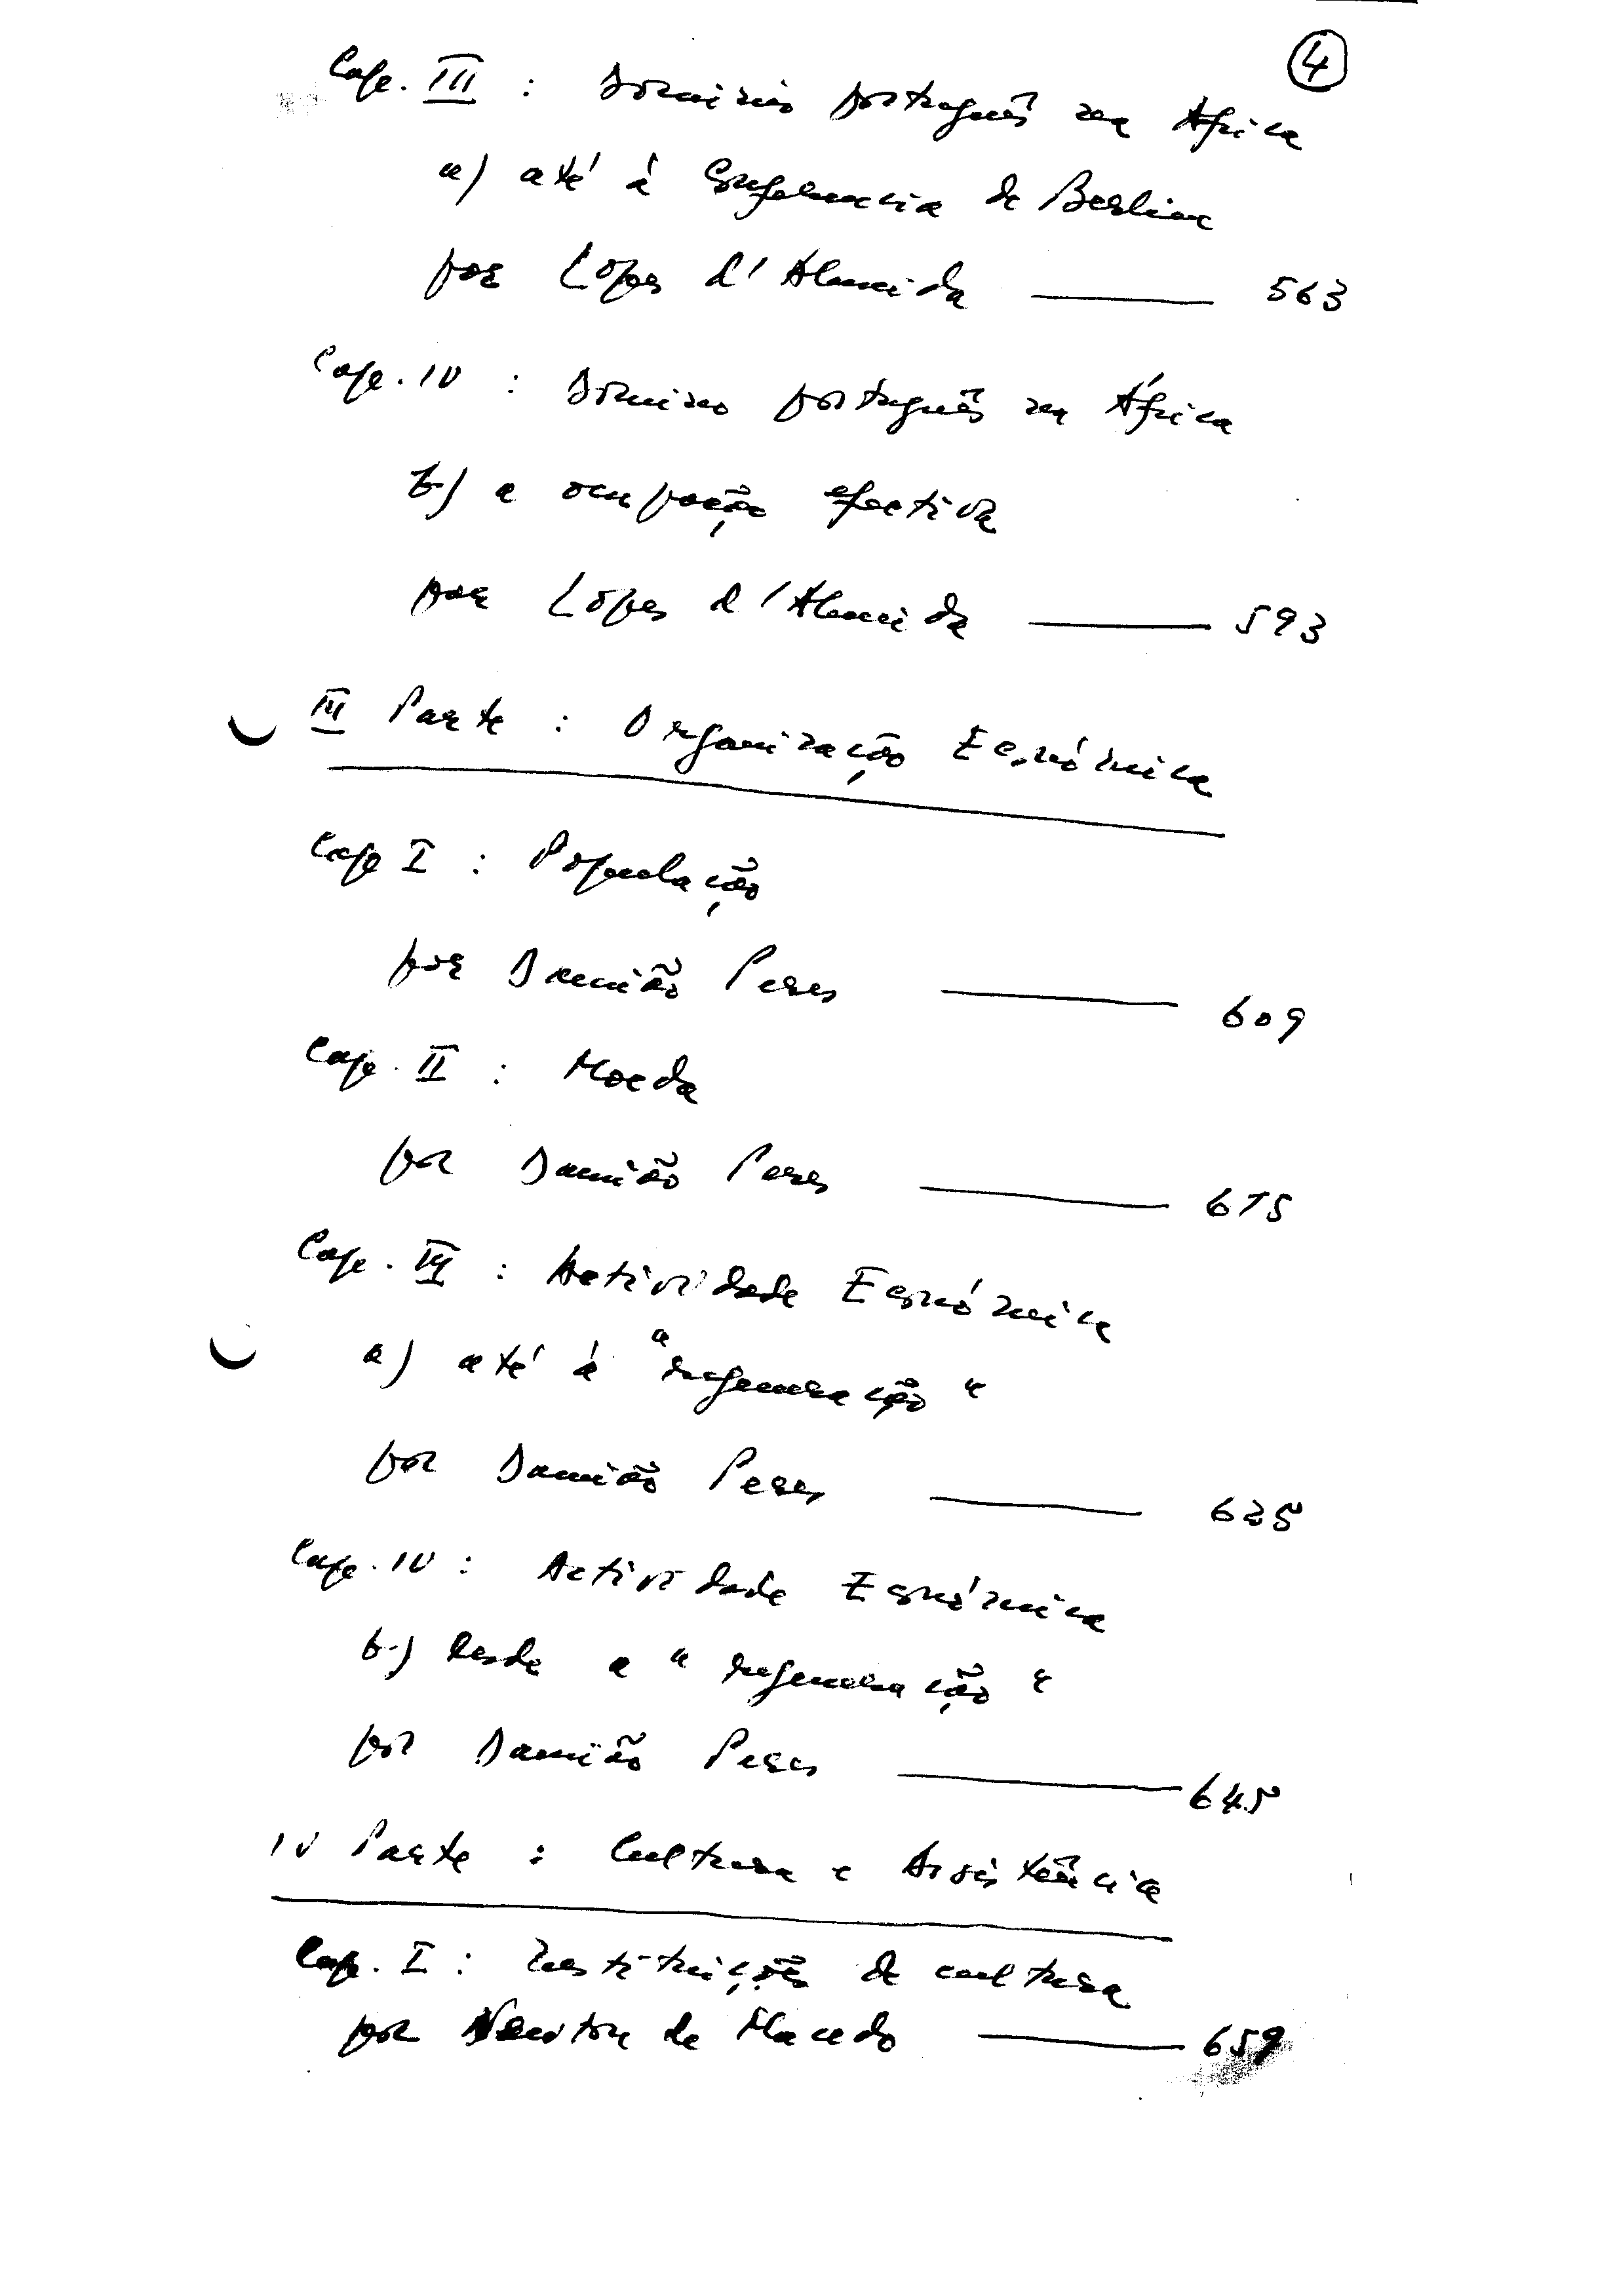 4
Cap. III : Domínio português na Africa
a) até à Conferencia de Berlim
por Lopes d'Almeida — 563
Cap. IV : Domínio português na África
b) a ocupação efectiva
por Lopes d'Almeida — 593
III Parte : Organização Económica
Cap I : População
por Damião Peres — 609
Cap. II : Moeda
por Damião Peres — 615
Cap. III : Actividade Económica
a) até à "regeneração"
por Damião Peres — 625
Cap. IV : Actividade Económica
b) desde a "regeneração"
por Damião Peres — 645
IV Parte : Cultura e Assistência
Cap. I : Instituições de cultura
por Newton de Macedo — 659